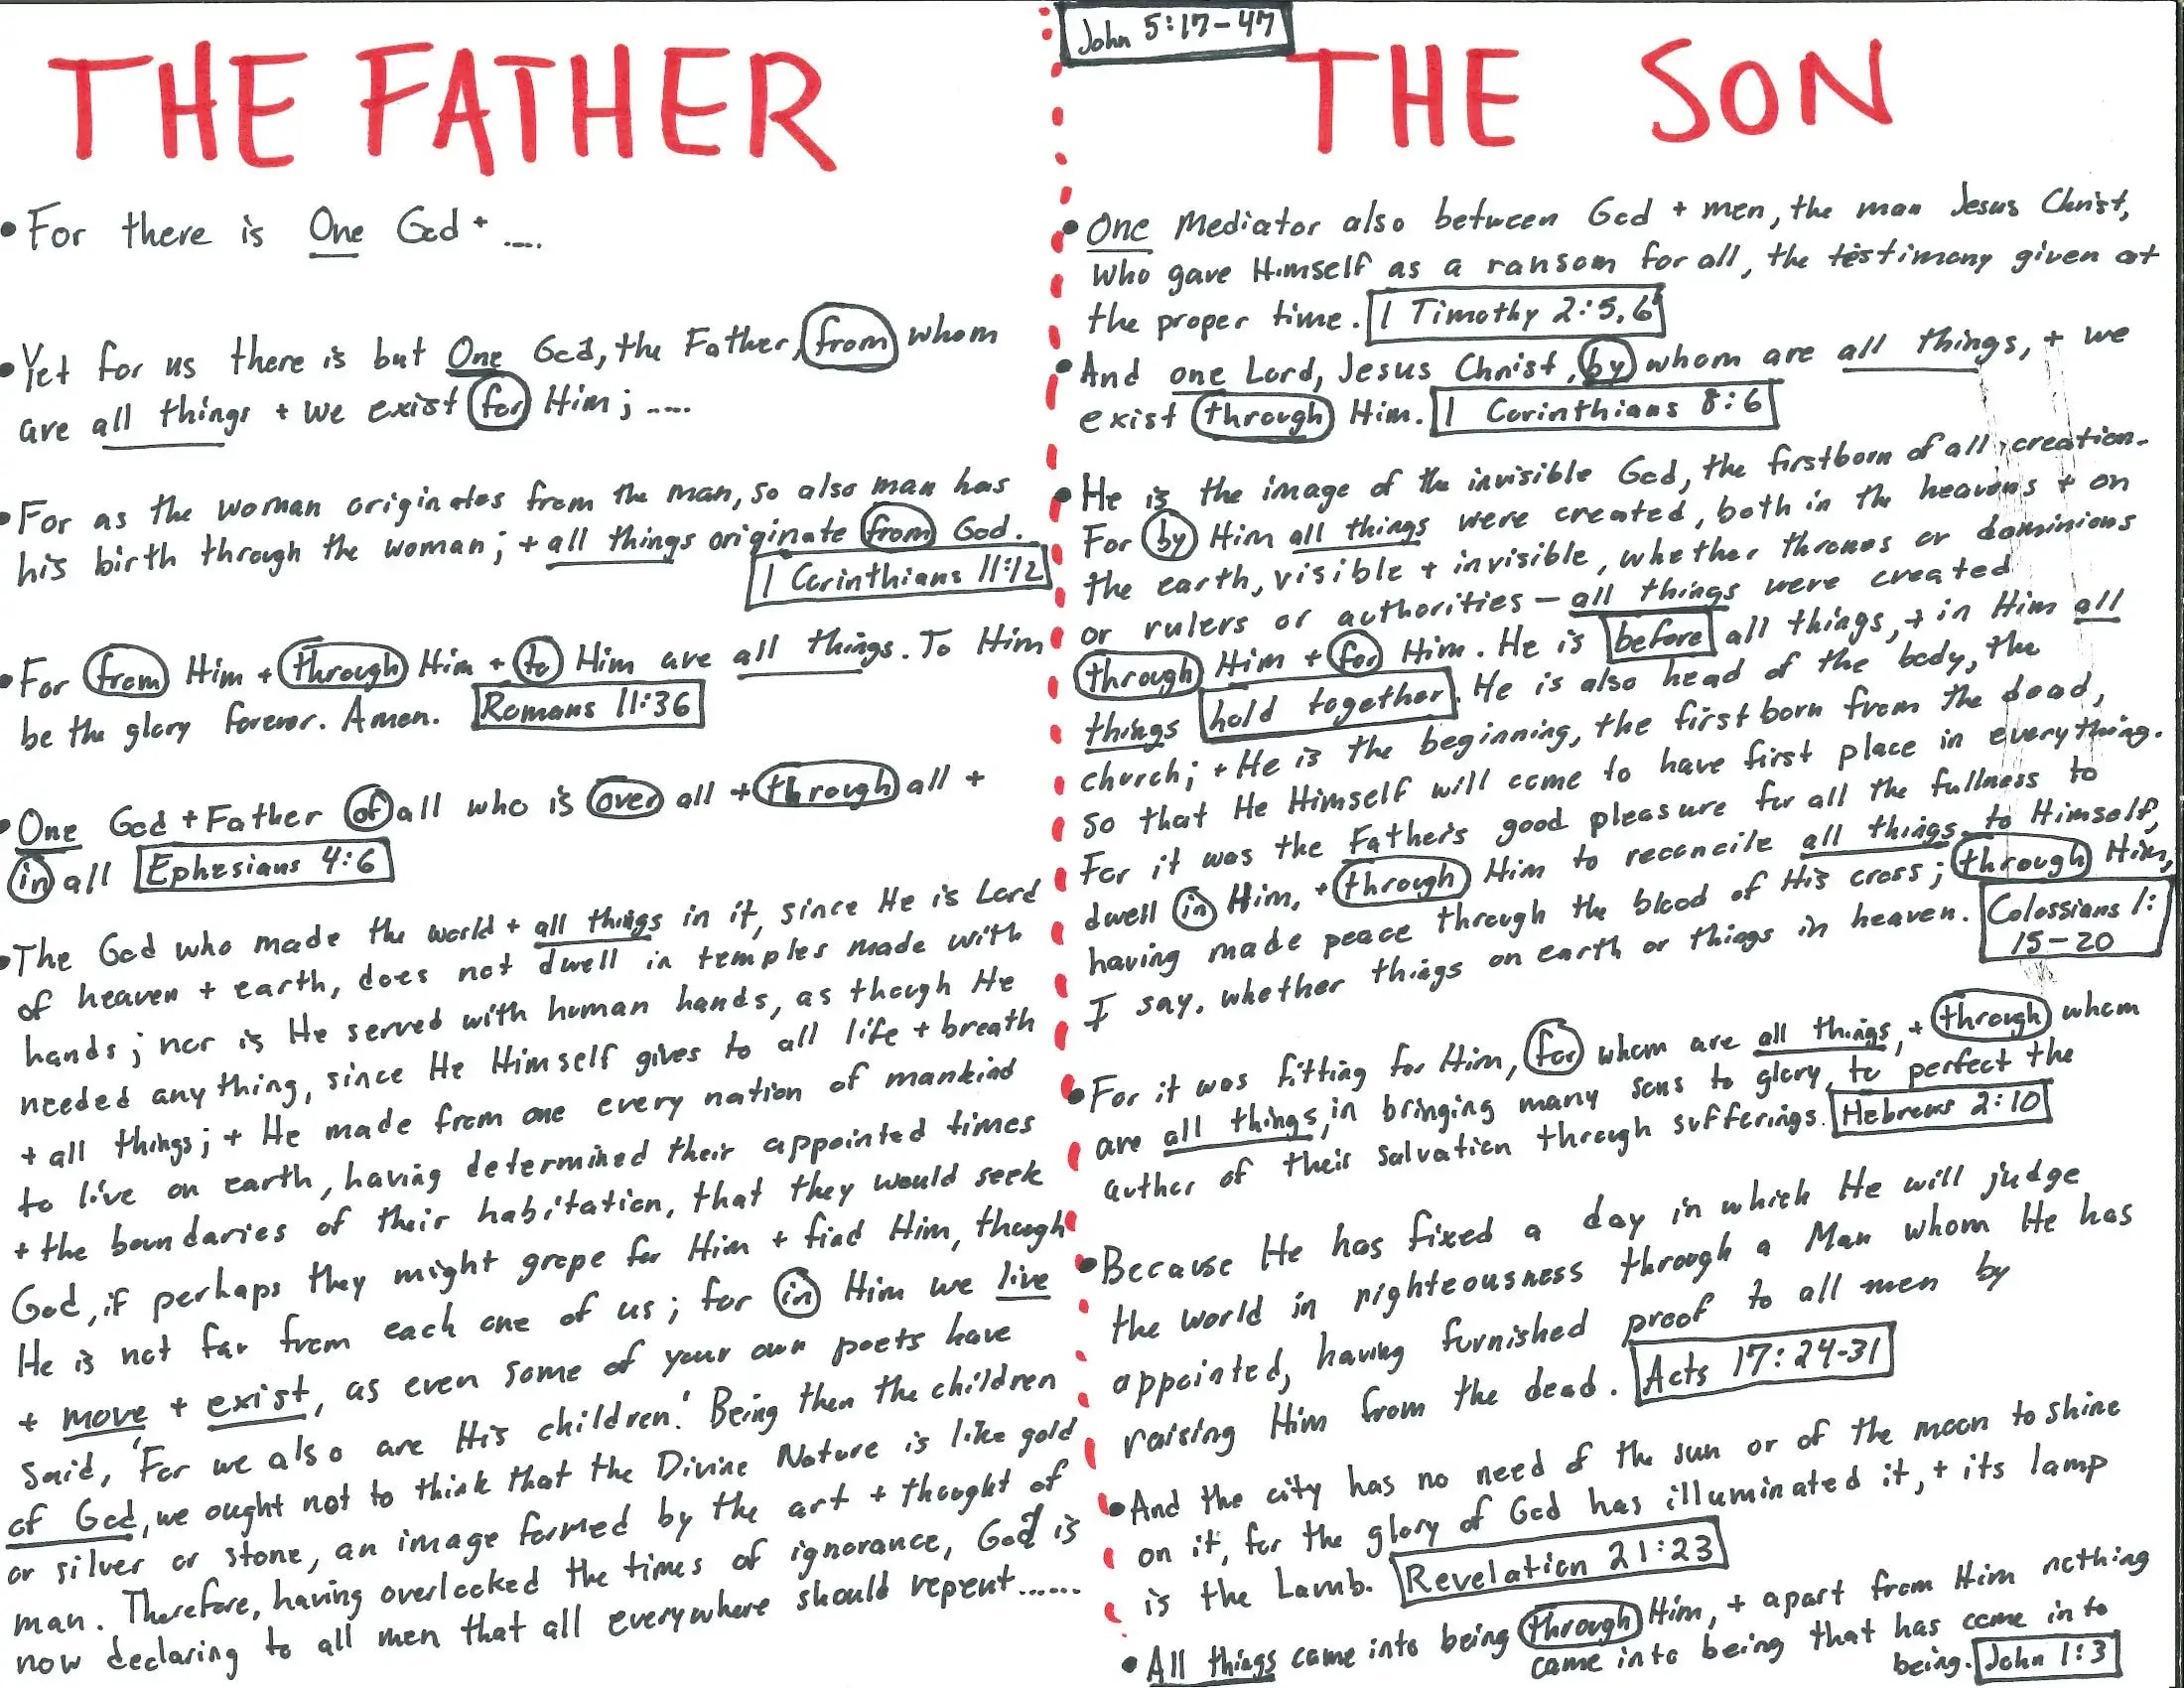 John 5:17-47
THE FATHER
• For there is One God + ....
• Yet for us there is but One God, the Father, from whom
are all things + we exist for Him; ....
• For as the woman originates from the man, so also man has
his birth through the woman; + all things originate from God.
1 Corinthians 11:12
• For from Him + through Him + to Him are all things. To Him
be the glory forever. Amen. Romans 11:36
• One God + Father of all who is over all + through all +
in all Ephesians 4:6
• The God who made the world + all things in it, since He is Lord
of heaven + earth, does not dwell in temples made with
hands; nor is He served with human hands, as though He
needed anything, since He Himself gives to all life + breath
+ all things; + He made from one every nation of mankind
to live on earth, having determined their appointed times
+ the boundaries of their habitation, that they would seek
God, if perhaps they might grope for Him + find Him, though
He is not far from each one of us; for in Him we live
+ move + exist, as even some of your own poets have
said, 'For we also are His children.' Being then the children
of God, we ought not to think that the Divine Nature is like gold
or silver or stone, an image formed by the art + thought of
man. Therefore, having overlooked the times of ignorance, God is
now declaring to all men that all everywhere should repent......
THE SON
• One Mediator also between God + men, the man Jesus Christ,
who gave Himself as a ransom for all, the testimony given at
the proper time. 1 Timothy 2:5,6
• And one Lord, Jesus Christ, by whom are all things, + we
exist through Him. 1 Corinthians 8:6
• He is the image of the invisible God, the firstborn of all creation.
For by Him all things were created, both in the heavens + on
the earth, visible + invisible, whether thrones or dominions
or rulers or authorities - all things were created
through Him + for Him. He is before all things, + in Him all
things hold together. He is also head of the body, the
church; + He is the beginning, the first born from the dead,
so that He Himself will come to have first place in everything.
For it was the Father's good pleasure for all the fullness to
dwell in Him, + through Him to reconcile all things to Himself,
having made peace through the blood of His cross; through Him,
I say, whether things on earth or things in heaven. Colossians 1:
15-20
• For it was fitting for Him, for whom are all things, + through whom
are all things, in bringing many sons to glory, to perfect the
author of their salvation through sufferings. Hebrews 2:10
• Because He has fixed a day in which He will judge
the world in righteousness through a Man whom He has
appointed, having furnished proof to all men by
raising Him from the dead. Acts 17:24-31
• And the city has no need of the sun or of the moon to shine
on it, for the glory of God has illuminated it, + its lamp
is the Lamb. Revelation 21:23
• All things came into being through Him, + apart from Him nothing
came into being that has come into
being. John 1:3